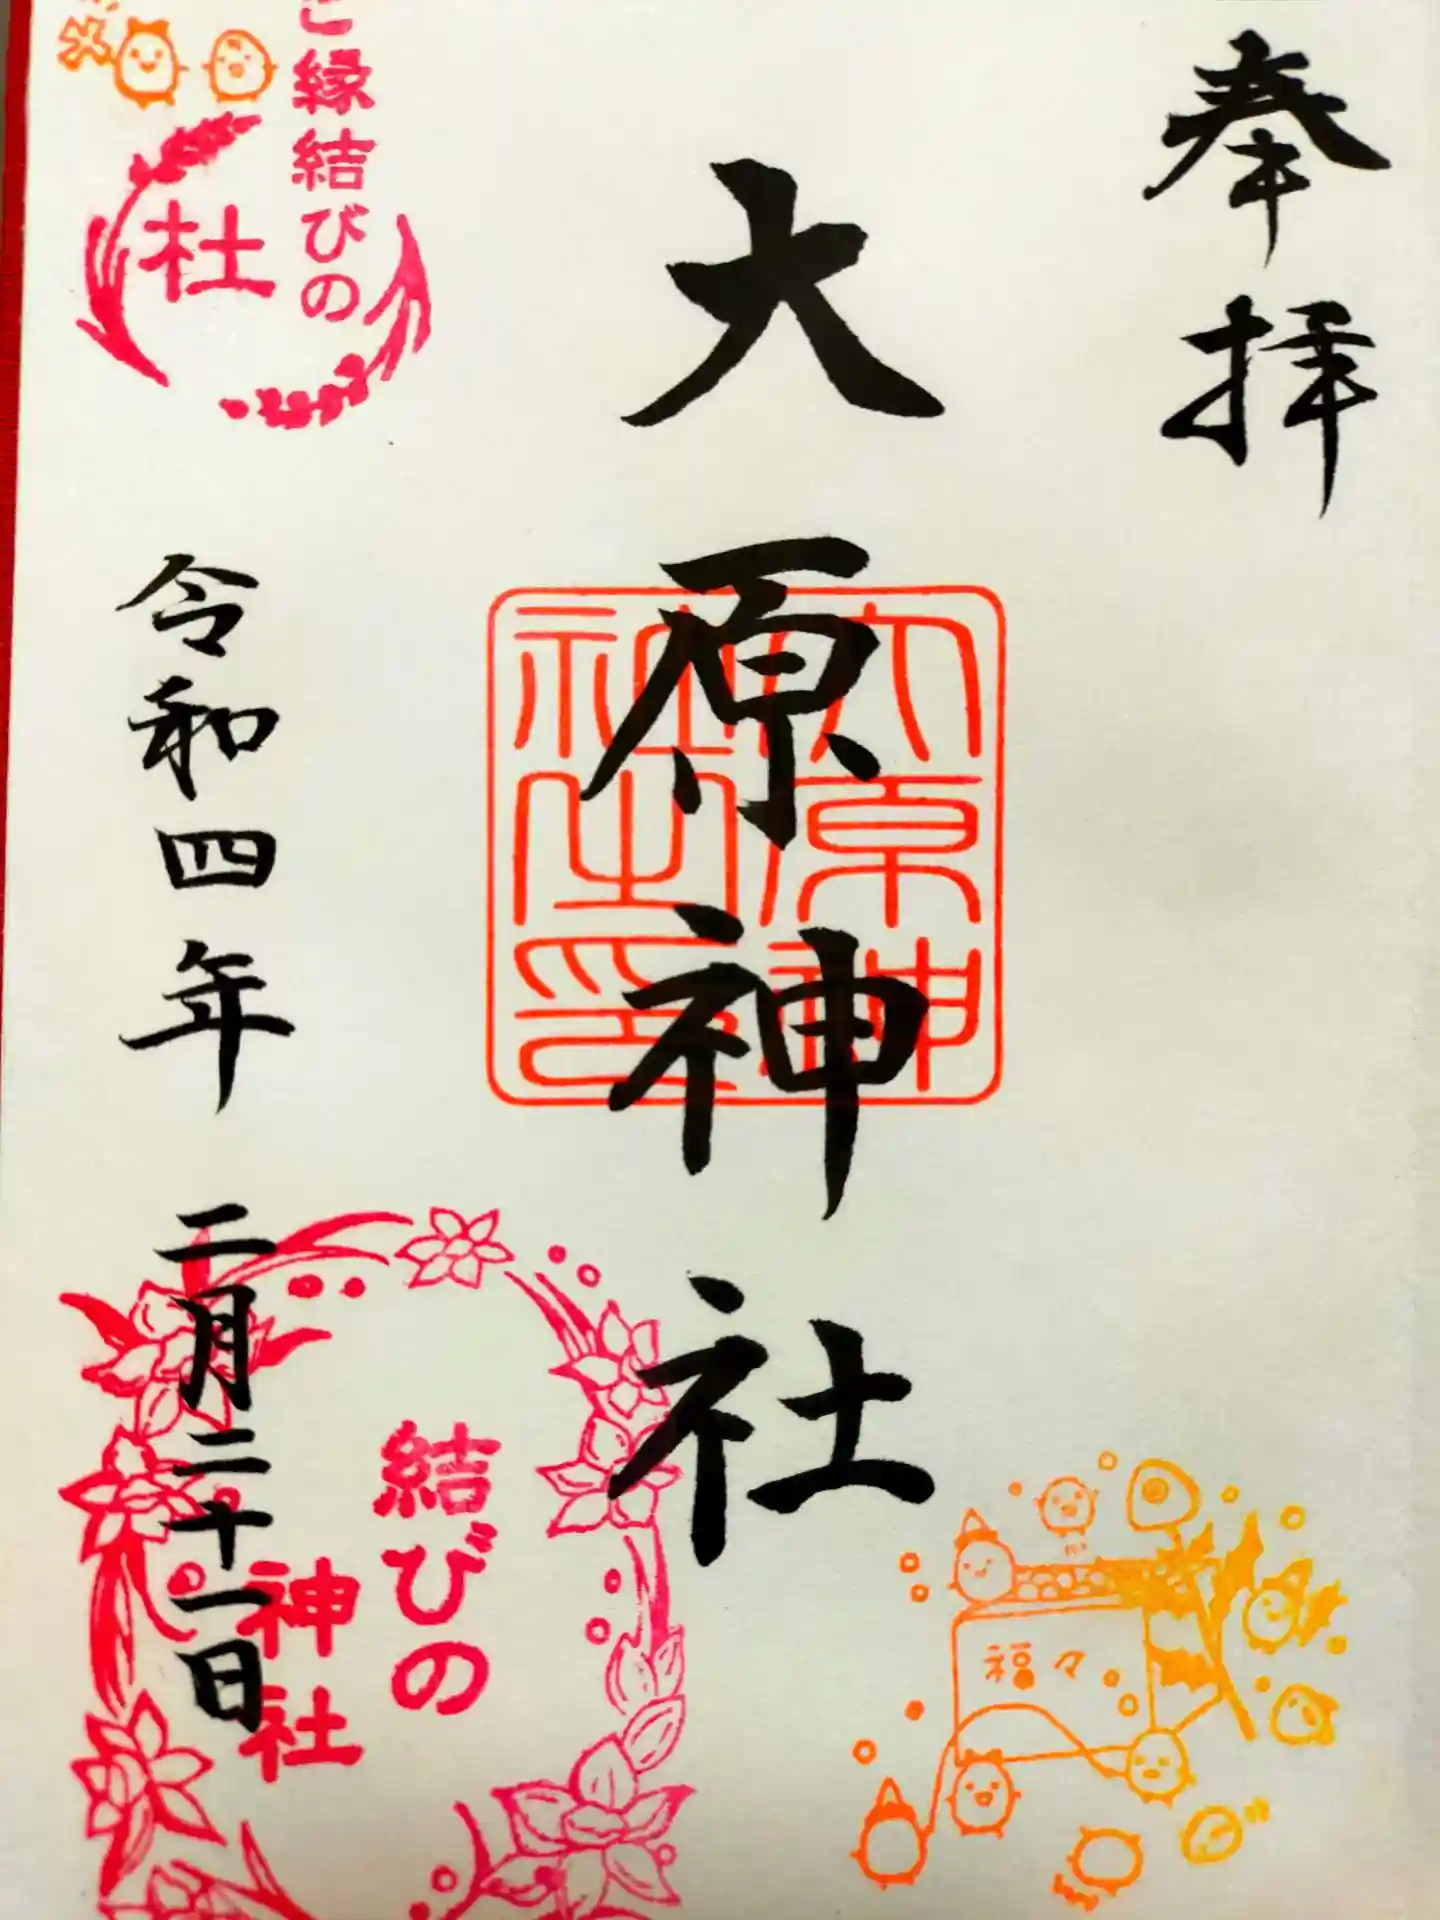 奉拝
大原神社
大原神社之印
ご縁結びの
杜
令和四年
二月二十一日
結びの
神社
福々